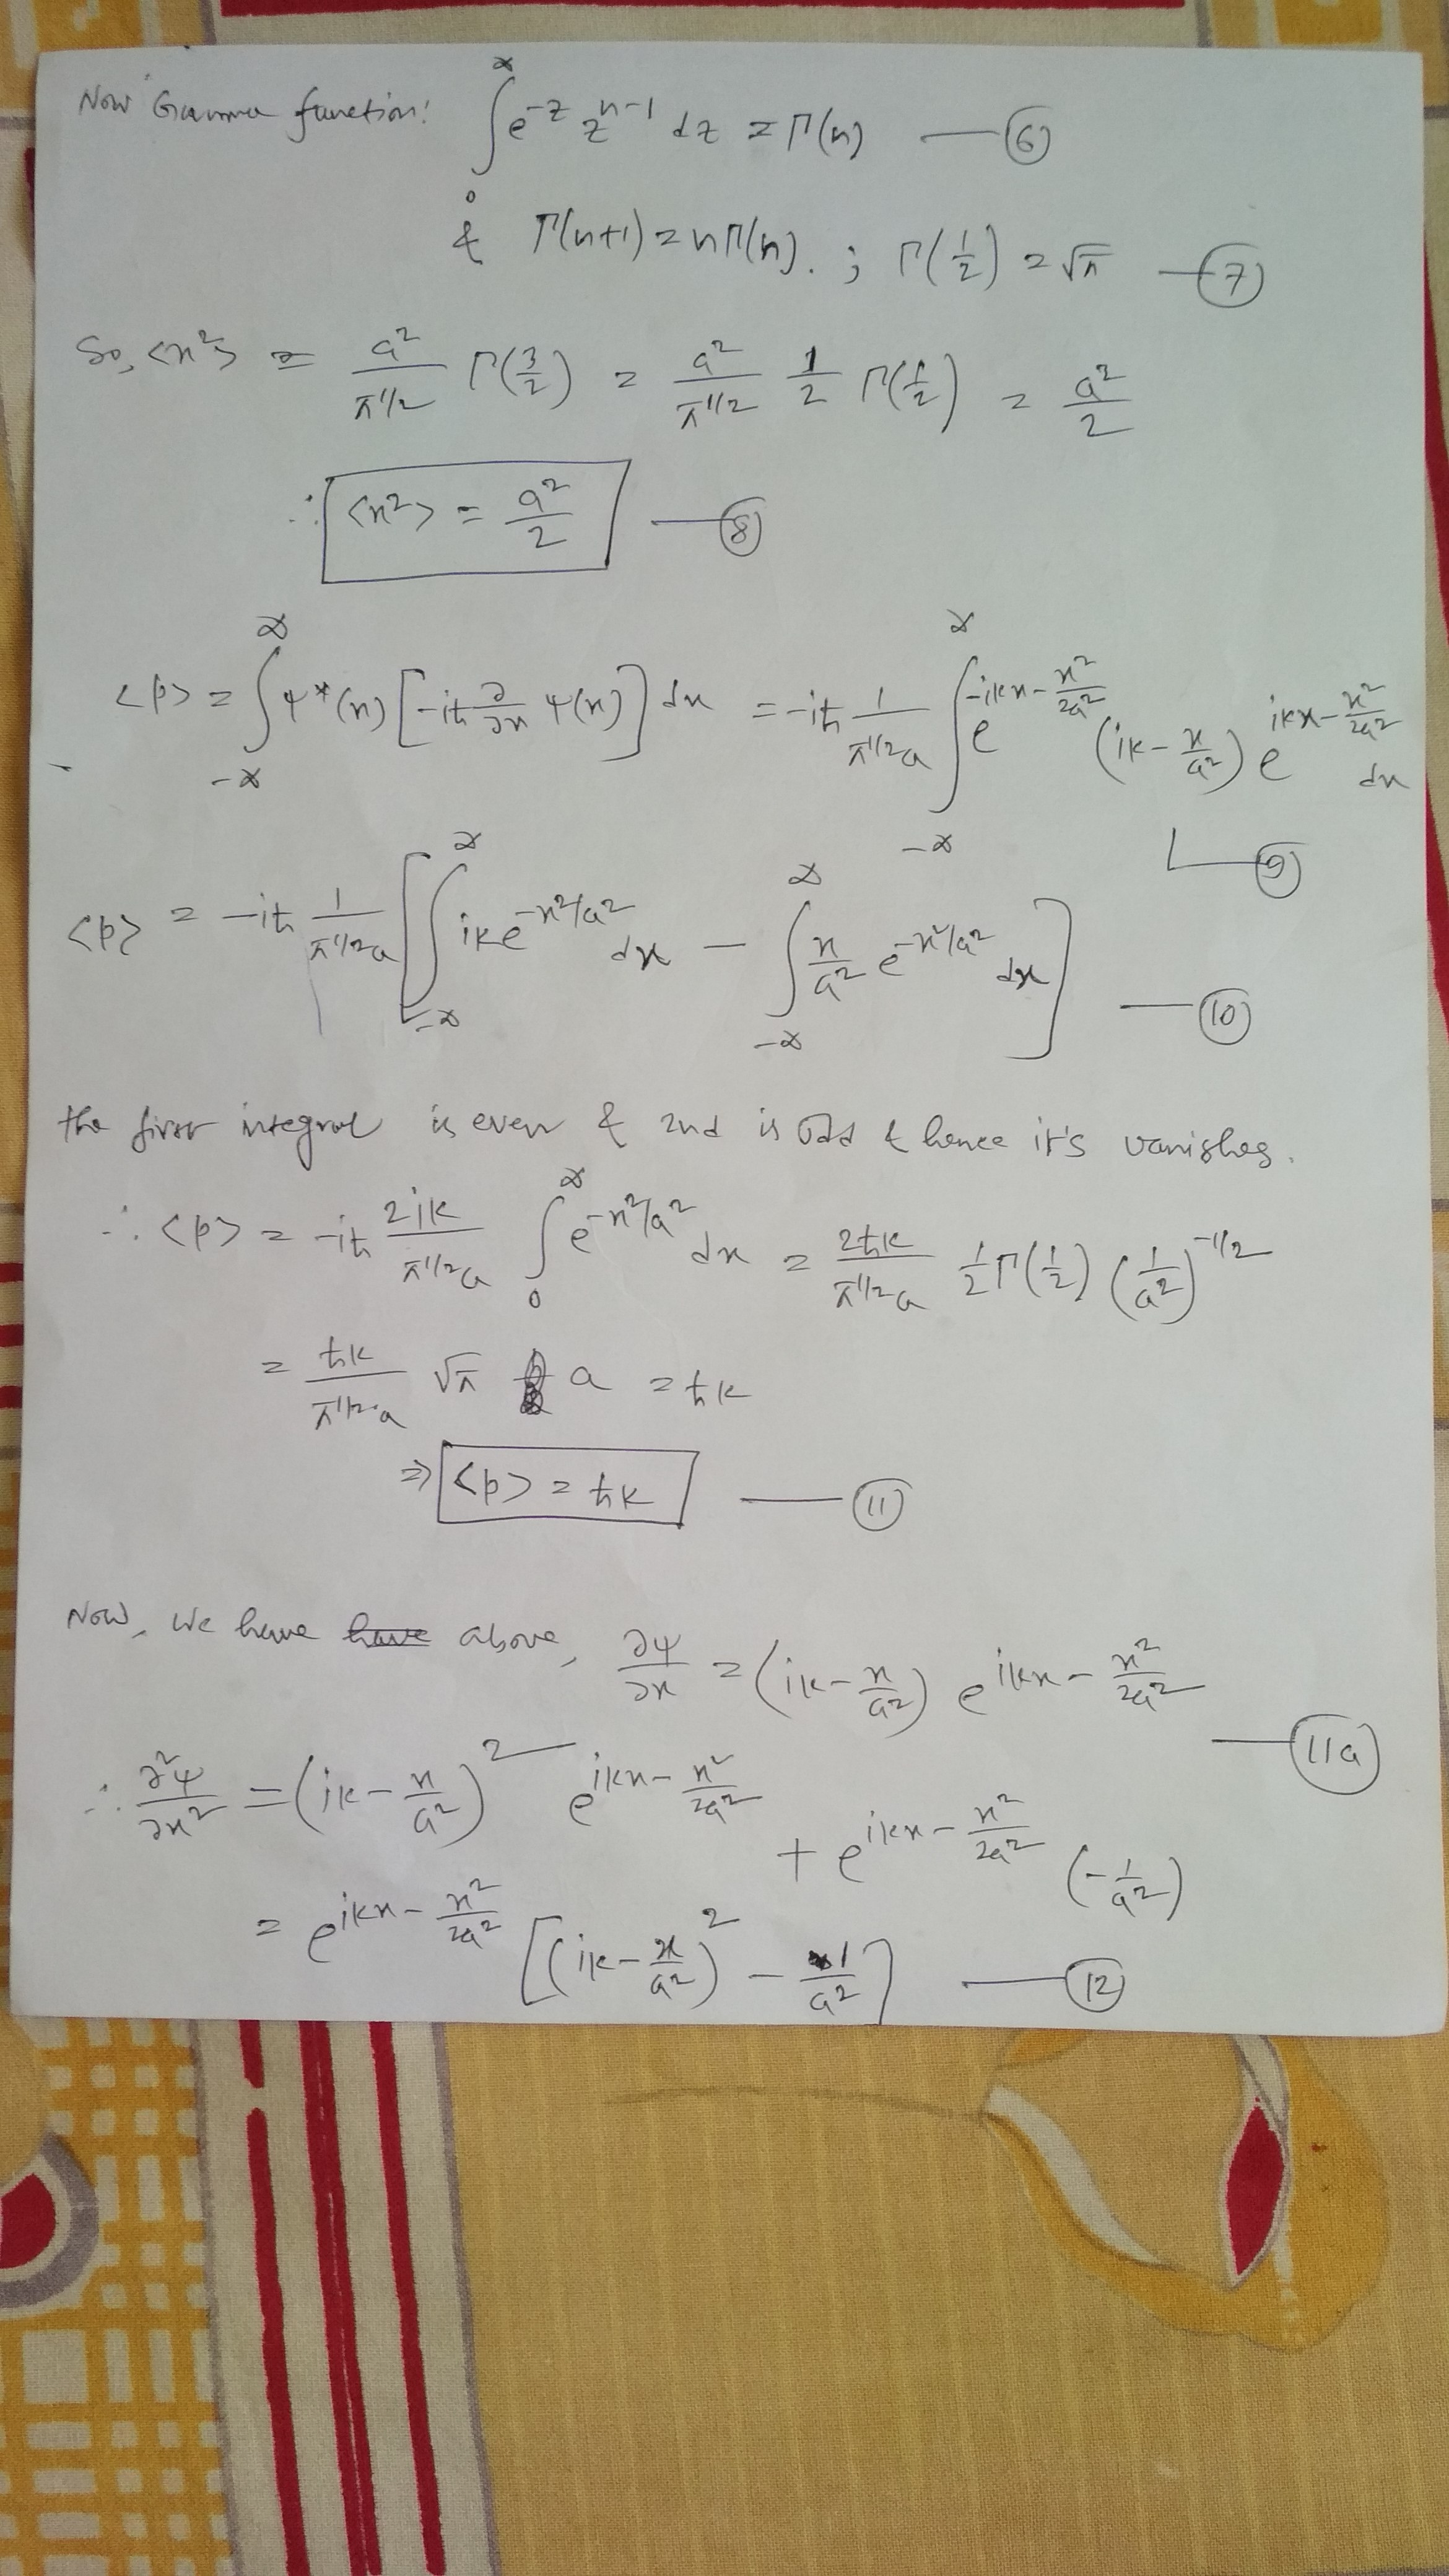 Now Gamma function: ∫₀^∞ e^{-z} z^{n-1} dz = Γ(n) — (6)
& Γ(n+1) = nΓ(n). ; Γ(1/2) = √π — (7)
So, <x²> = a²/π^{1/2} Γ(3/2) = a²/π^{1/2} 1/2 Γ(1/2) = a²/2
∴ <x²> = a²/2 — (8)
<p> = ∫_{-∞}^{∞} ψ*(x) [-iħ ∂/∂x ψ(x)] dx = -iħ 1/(π^{1/2}a) ∫_{-∞}^{∞} e^{-ikx - x²/2a²} (ik - x/a²) e^{ikx - x²/2a²} dx
— (9)
<p> = -iħ 1/(π^{1/2}a) [∫_{-∞}^{∞} ik e^{-x²/a²} dx - ∫_{-∞}^{∞} x/a² e^{-x²/a²} dx] — (10)
the first integral is even & 2nd is odd & hence it's vanishes.
∴ <p> = -iħ 2ik/(π^{1/2}a) ∫₀^∞ e^{-x²/a²} dx = 2ħk/(π^{1/2}a) 1/2 Γ(1/2) (1/a²)^{-1/2}
= ħk/(π^{1/2}·a) √π a = ħk
⇒ <p> = ħk — (11)
Now, we have have above, ∂ψ/∂x = (ik - x/a²) e^{ikx - x²/2a²} — (11a)
∴ ∂²ψ/∂x² = (ik - x/a²)² e^{ikx - x²/2a²} + e^{ikx - x²/2a²} (-1/a²)
= e^{ikx - x²/2a²} [(ik - x/a²)² - 1/a²] — (12)